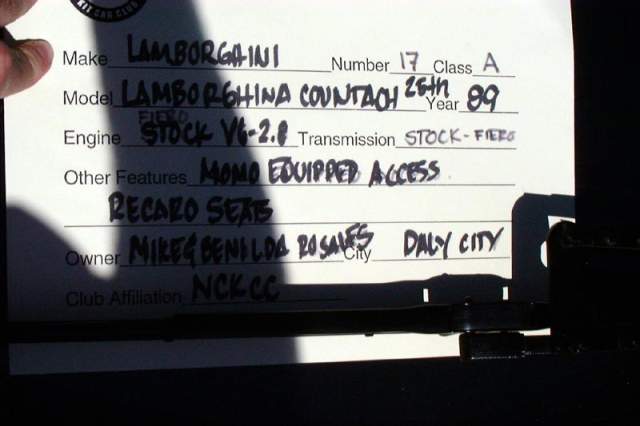 KIT CAR CLUB
Make LAMBORGHINI Number 17 Class A
Model LAMBORGHINA COUNTACH 25th Year 89
Engine FIERO STOCK V6-2.8 Transmission STOCK-FIERO
Other Features MOMO EQUIPPED ACCESS
RECARO SEATS
Owner MIKE & BENILDA ROSALES City DALY CITY
Club Affiliation NCKCC